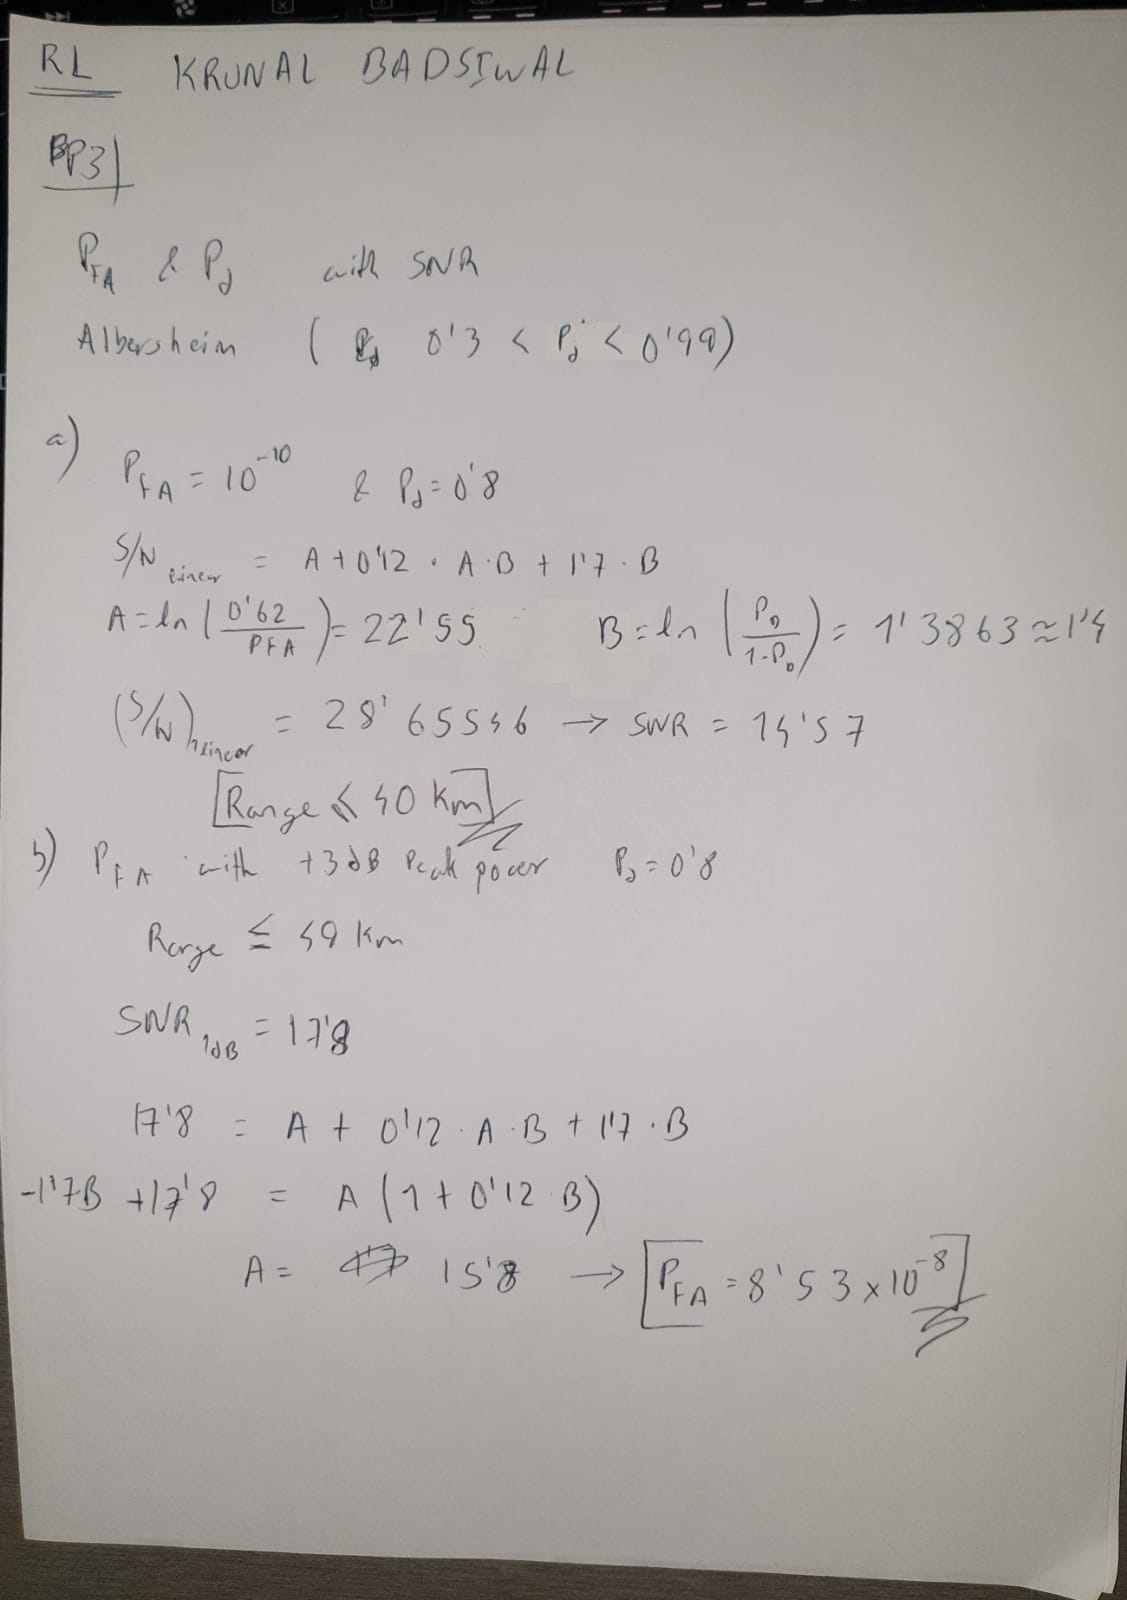 RL KRUNAL BADSIWAL
BP3
PFA & Pd with SNR
Albersheim ( 0'3 < Pd < 0'99)
a) PFA = 10^-10 & Pd = 0'8
S/N linear = A + 0'12 · A·B + 1'7 · B
A = ln (0'62 / PFA) = 22'55 B = ln (PD / 1-PD) = 1'3863 ≈ 1'4
(S/N) linear = 28'65546 → SNR = 14'57
[Range ≤ 40 km]
b) PFA with +3dB Peak power PD = 0'8
Range ≤ 49 km
SNR 1dB = 17'8
17'8 = A + 0'12 · A · B + 1'7 · B
-1'7B + 17'8 = A (1 + 0'12 B)
A = 15'8 → [PFA = 8'53 x 10^-8]